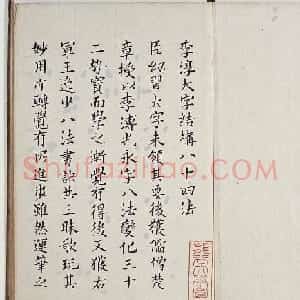 李淳大字結構八十四法
臣幼習大字未領其要後獲儒僧楚
章授以李溥光永字八法變化三十
二勢寶而學之時覺有得後又獲右
軍王逸少八法書訣其三昧歌玩其
妙用亦轉覺有以進也雖然運筆之
Shufaziliao.com